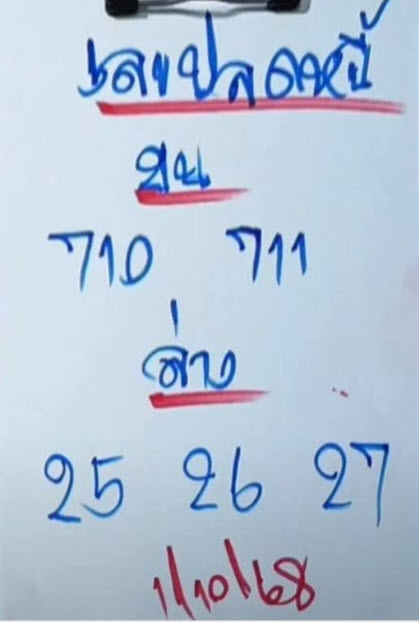 เลขปลดหนี้
บน
710 711
ล่าง
25 26 27
1/10/68